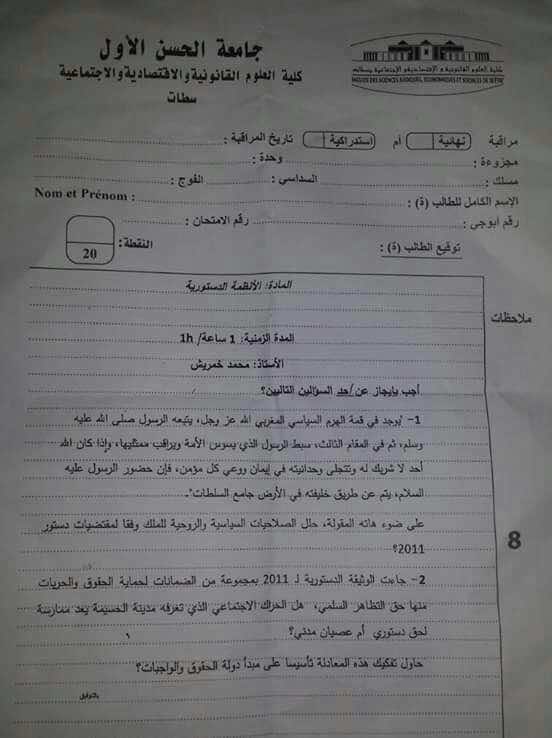 جامعة الحسن الأول
كلية العلوم القانونية والاقتصادية والاجتماعية
سطات
كلية العلوم القانونية و الاقتصادية و الاجتماعية بسطات
FACULTE DES SCIENCES JURIDIQUES, ECONOMIQUES ET SOCIALES DE SETTAT
مراقبة نهائية أم استدراكية تاريخ المراقبة :
مجزوءة : وحدة :
مسلك : السداسي : الفوج :
الإسم الكامل للطالب (ة) : Nom et Prénom :
رقم أبوجي : رقم الامتحان :
توقيع الطالب (ة) : النقطة: 20
ملاحظات
المادة: الأنظمة الدستورية
المدة الزمنية: 1 ساعة/ 1h
الأستاذ: محمد خمريش
أجب بإيجاز عن أحد السؤالين التاليين؟
1- "يوجد في قمة الهرم السياسي المغربي الله عز وجل، يتبعه الرسول صلى الله عليه
وسلم، ثم في المقام الثالث، سبط الرسول الذي يسوس الأمة ويراقب ممثليها، وإذا كان الله
أحد لا شريك له وتتجلى وحدانيته في إيمان ووعي كل مؤمن، فإن حضور الرسول عليه
السلام، يتم عن طريق خليفته في الأرض جامع السلطات".
على ضوء هاته المقولة، حلل الصلاحيات السياسية والروحية للملك وفقا لمقتضيات دستور
2011؟
8
2- جاءت الوثيقة الدستورية لـ 2011 بمجموعة من الضمانات لحماية الحقوق والحريات
منها حق التظاهر السلمي، هل الحراك الاجتماعي الذي تعرفه مدينة الحسيمة يعد ممارسة
لحق دستوري أم عصيان مدني؟
حاول تفكيك هذه المعادلة تأسيسا على مبدأ دولة الحقوق والواجبات؟
بالتوفيق